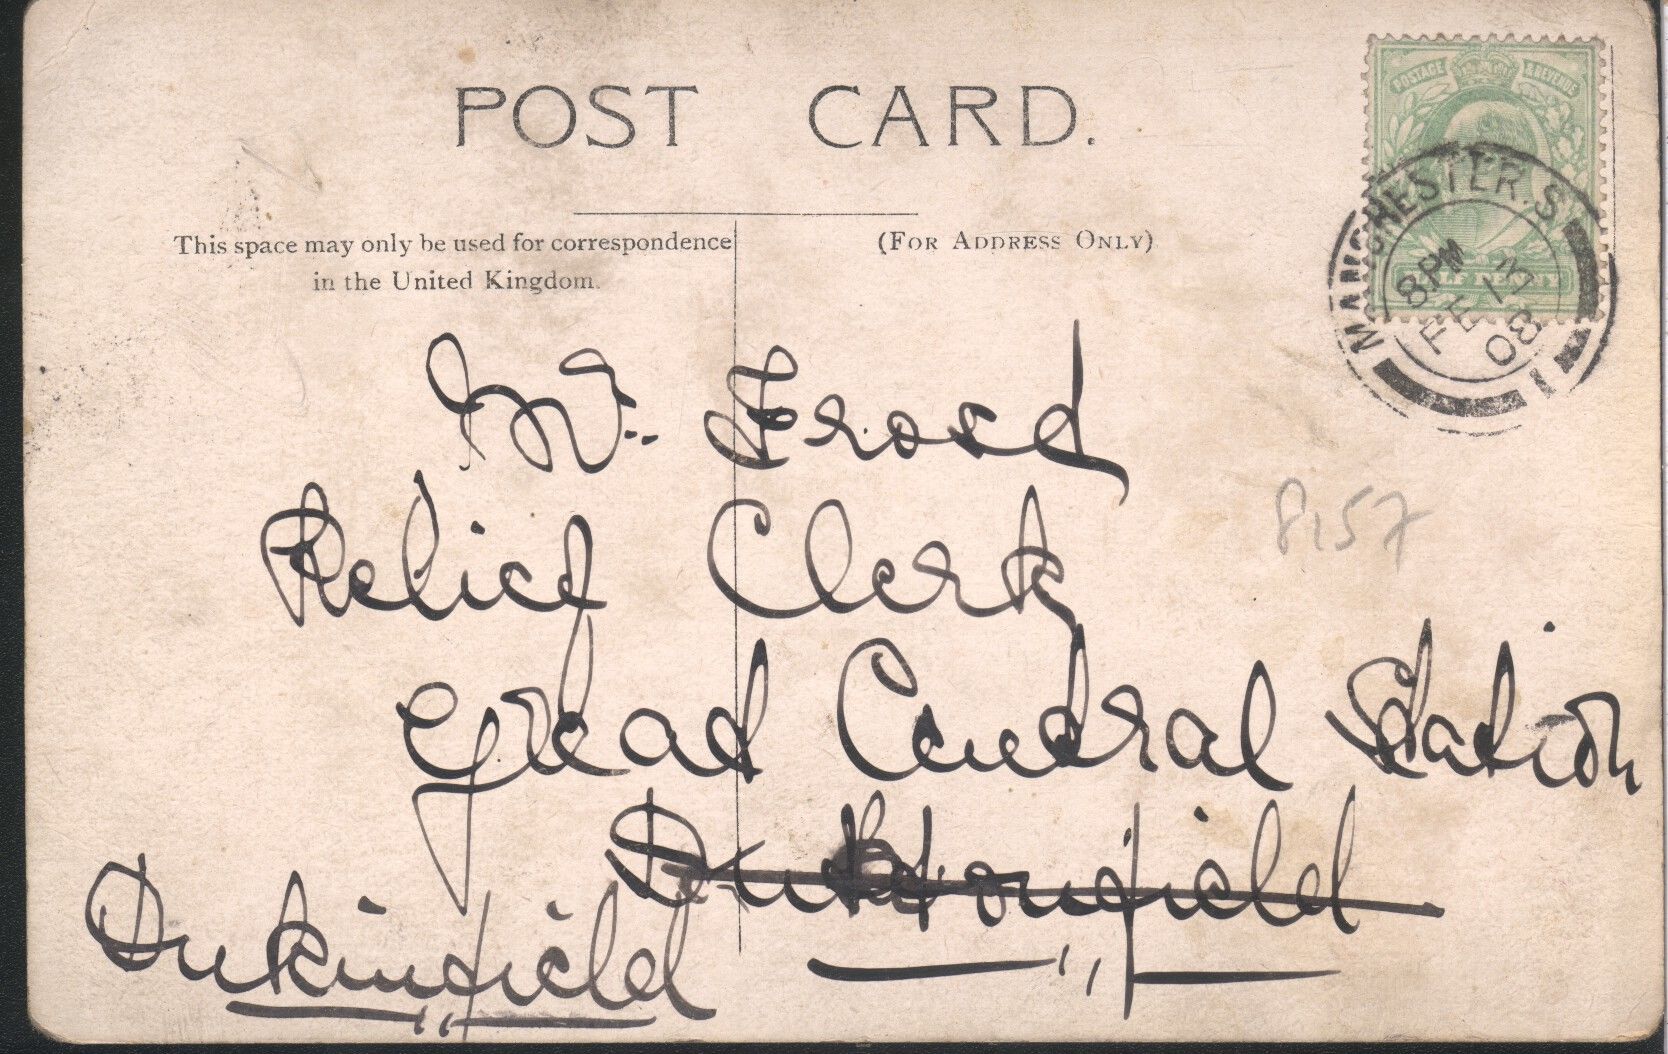 POST CARD.
This space may only be used for correspondence
in the United Kingdom.
(FOR ADDRESS ONLY)
POSTAGE & REVENUE
MANCHESTER.S.
8 PM
FE 17
08
1
Mr. Frost
Relief Clerk
Great Central Station
Dukinfield
8157